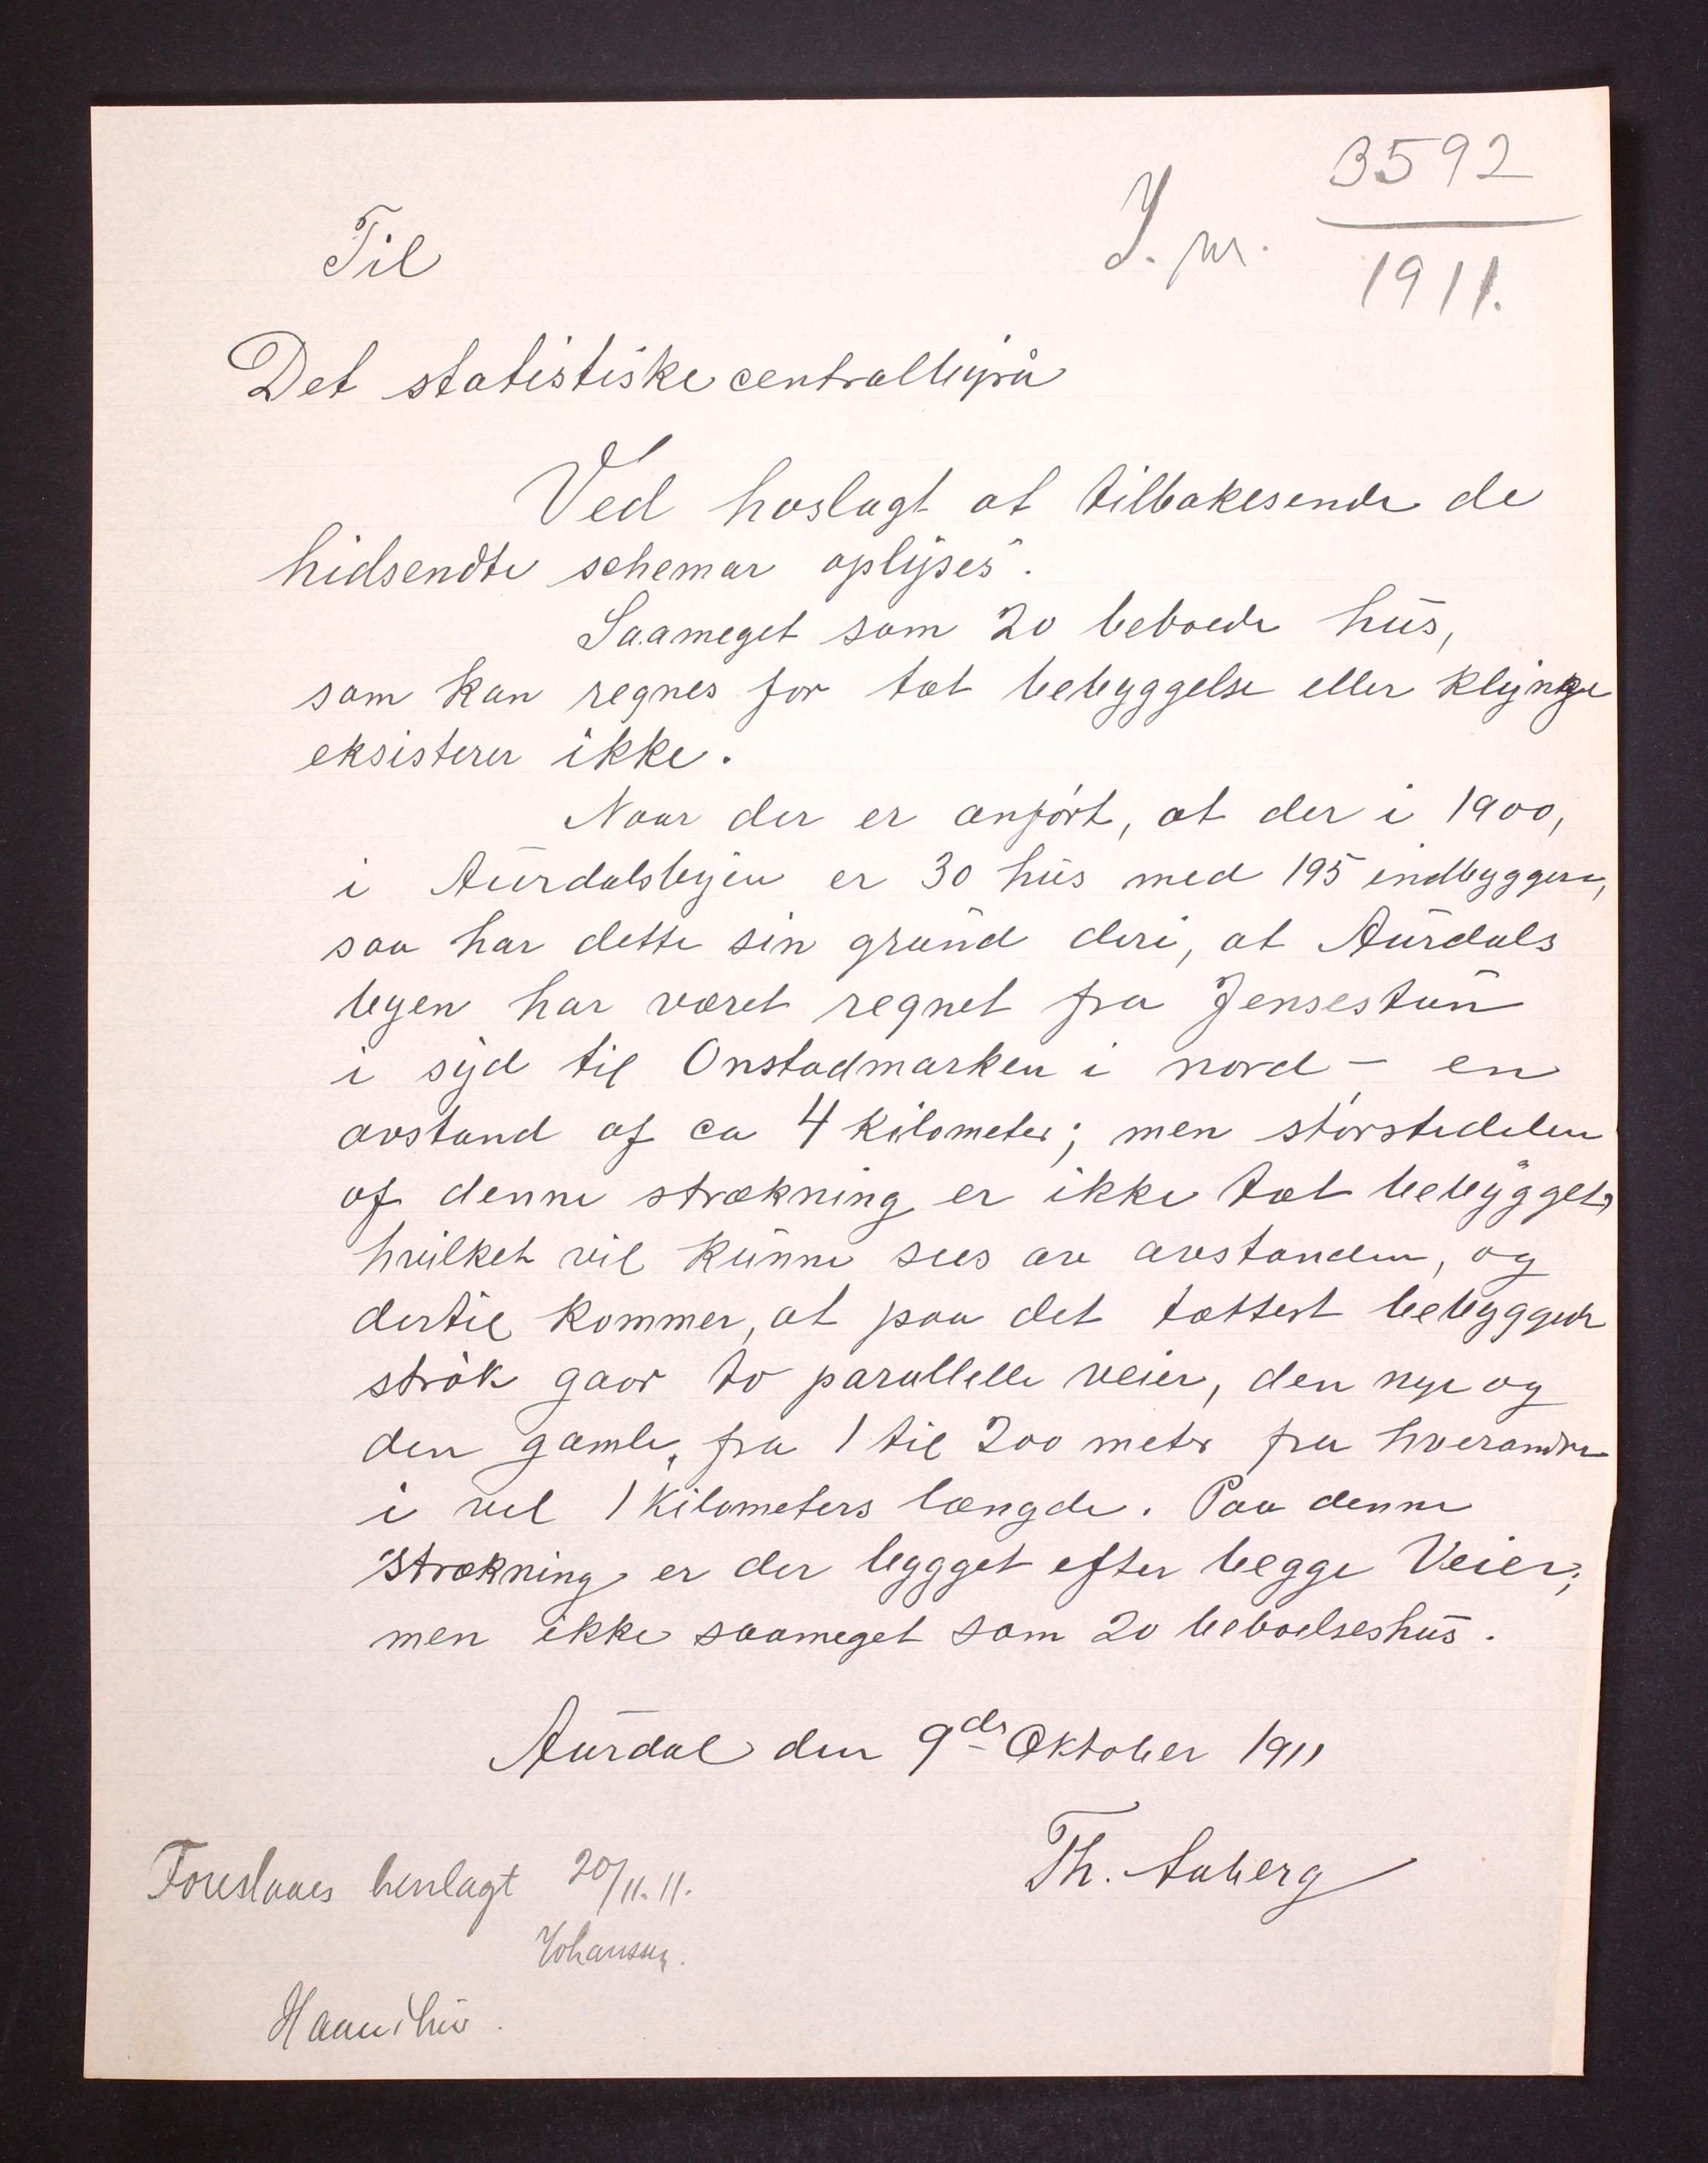 J. nr. 3592
1911.
Til
Det statistiske centralbyrå
Ved hoslagt at tilbakesende de
hidsendte schemar oplyses.
Saameget som 20 beboede hus,
som kan regnes for tæt bebyggelse eller klynge
eksisterer ikke.
Naar der er anført, at der i 1900,
i Aurdalsbyen er 30 hus med 195 indbyggere,
saa har dette sin grund deri, at Aurdals
byen har været regnet fra Jensestun
i syd til Onstadmarken i nord - en
avstand af ca 4 kilometer; men størstedelen
af denne strækning er ikke tæt bebygget,
hvilket vil kunne sees av avstanden, og
dertil kommer, at paa det tættest bebyggede
strøk gaar to parallelle veier, den nye og
den gamle, fra 1 til 200 meter fra hverandre
i vel 1 kilometers længde. Paa denne
strækning er der bygget efter begge Veier;
men ikke saameget som 20 beboelseshus.
Aurdal den 9de Oktober 1911
Th. Aaberg
Foreslaaes henlagt 20/11.11.
Johanssen.